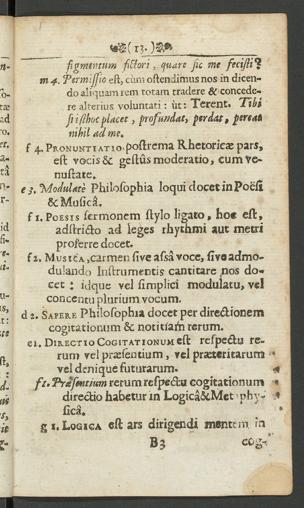 (13.)
figmentum fictori, quare sic me fecisti?
m 4. Permissio est, cùm ostendimus nos in dicen-
do aliquam rem totam tradere & concede-
re alterius voluntati: ùt: Terent. Tibi
si isthoc placet, profundat, perdat, pereat
nihil ad me.
f 4. PRONUNTIATIO postrema Rhetoricæ pars,
est vocis & gestûs moderatio, cum ve-
nustate.
e 3. Modulatè Philosophia loqui docet in Poësi
& Musicâ.
f 1. POESIS sermonem stylo ligato, hoc est,
adstricto ad leges rhythmi aut metri
proferre docet.
f 2. MUSICA, carmen sive assâ voce, sive admo-
dulando Instrumentis cantitare nos do-
cet: idque vel simplici modulatu, vel
concentu plurium vocum.
d 2. SAPERE Philosophia docet per directionem
cogitationum & notitiam rerum.
e 1. DIRECTIO COGITATIONUM est respectu re-
rum vel præsentium, vel præteritarum
vel denique futurarum.
f 1. Præsentium rerum respectu cogitationum
directio habetur in Logicâ & Metaphy-
sicâ.
g 1. LOGICA est ars dirigendi mentem in
B3 cog-